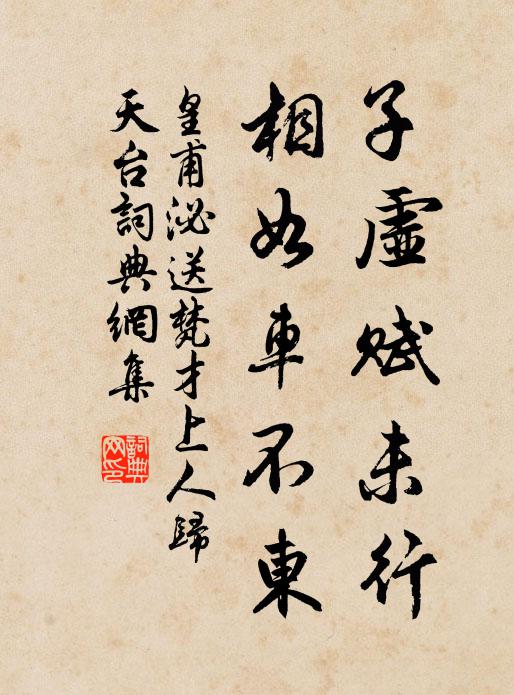 子虛賦未行
相如車不東
皇甫泌送梵才上人歸
天台詞典網集
詞典
网印